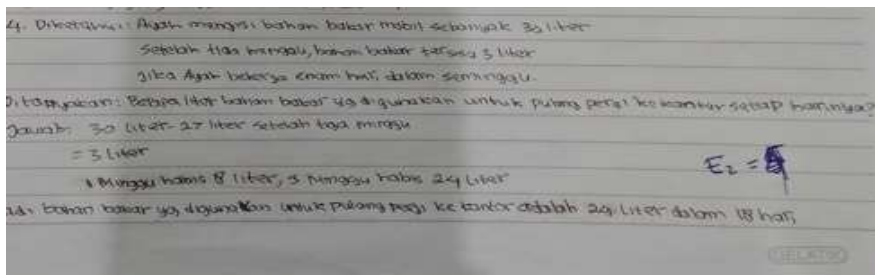 4. Diketahui: Ayah mengisi bahan bakar mobil sebanyak 30 liter
setelah tiga minggu, bahan bakar tersisa 3 liter
jika Ayah bekerja enam hari dalam seminggu.
Ditanyakan: Berapa liter bahan bakar yg digunakan untuk pulang pergi ke kantor setiap harinya?
Jawab: 30 liter - 27 liter setelah tiga minggu
= 3 liter
1 Minggu habis 8 liter, 3 minggu habis 24 liter
E2 =
Jadi bahan bakar yg digunakan untuk pulang pergi ke kantor adalah 24 liter dalam 18 hari